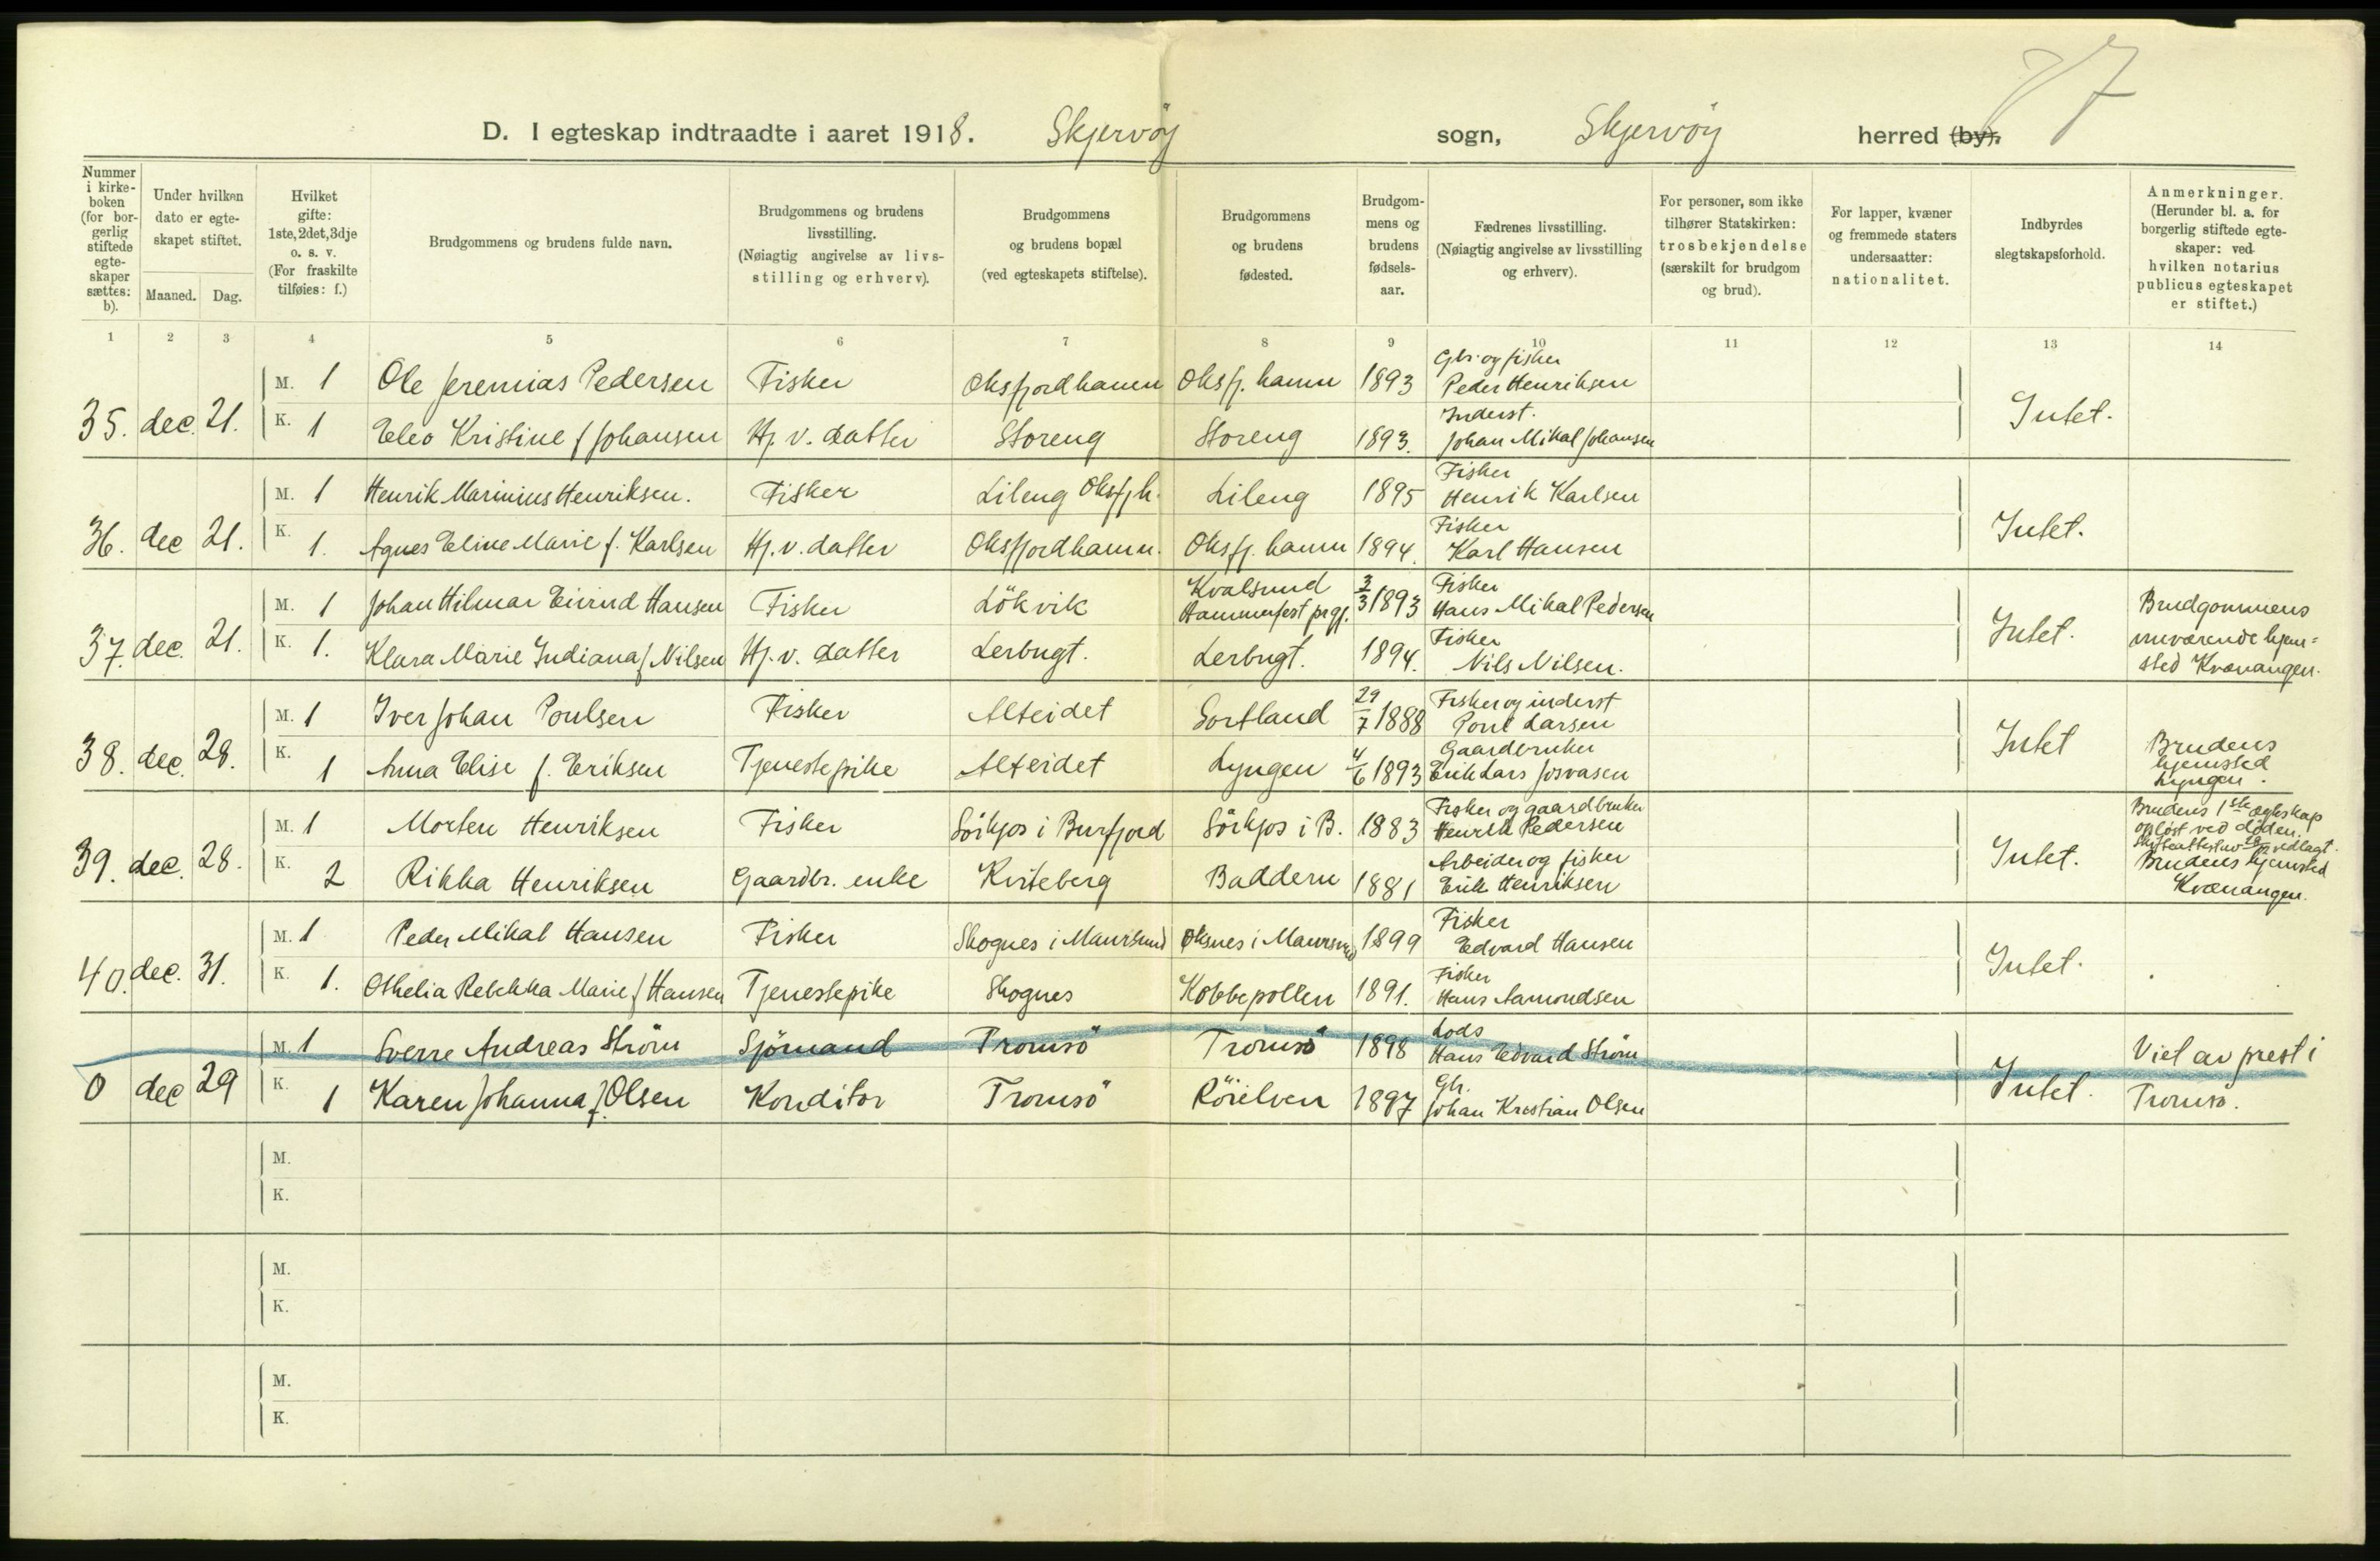 7
D. I egteskap indtraadte i aaret 1918. Skjervöy sogn, Skjervöy herred (by).
Nummer i kirke-boken (for bor-gerlig stiftede egte-skaper sættes: b).
Under hvilken dato er egte-skapet stiftet.
Maaned. Dag.
Hvilket gifte: 1ste, 2det, 3dje o. s. v. (For fraskilte tilføies: f.)
Brudgommens og brudens fulde navn.
Brudgommens og brudens livsstilling. (Nøiagtig angivelse av livs-stilling og erhverv).
Brudgommens og brudens bopæl (ved egteskapets stiftelse).
Brudgommens og brudens fødested.
Brudgom-mens og brudens fødsels-aar.
Fædrenes livsstilling. (Nøiagtig angivelse av livsstilling og erhverv).
For personer, som ikke tilhører Statskirken: trosbekjendelse (særskilt for brudgom og brud).
For lapper, kvæner og fremmede staters undersaatter: nationalitet.
Indbyrdes slegtskapsforhold.
Anmerkninger. (Herunder bl. a. for borgerlig stiftede egte-skaper: ved hvilken notarius publicus egteskapet er stiftet.)
1 2 3 4 5 6 7 8 9 10 11 12 13 14
35. dec. 21. M. 1 Ole Jeremias Pedersen Fisker Oksfjordhamn Oksfj. hamn 1893 Gbr. og fisker Peder Henriksen Intet.
K. 1 Eleo Kristine f Johansen Hj. v. datter Storeng Storeng 1893. Inderst. Johan Mikal Johansen
36. dec 21. M. 1 Henrik Marinius Henriksen. Fisker Lileng Oksfjh. Lileng 1895 Fisker Henrik Karlsen Intet.
K. 1. Agnes Eline Marie f. Karlsen Hj. v. datter Oksfjordhamn. Oksfj. hamn 1894. Fisker Karl Hansen
37. dec. 21. M. 1 Johan Hilmar Eivind Hansen Fisker Lökvik Kvalsund Hammerfest prgj. 3/3 1893 Fisker Hans Mikal Pedersen Intet. Brudgommens nuværende hjem=sted Kvænangen.
K. 1. Klara Marie Indiana f Nilsen Hj. v. datter Lerbugt. Lerbugt. 1894. Fisker Nils Nilsen.
38. dec. 28. M. 1 Iver Johan Poulsen Fisker Alteidet Sortland 29/7 1888 Fisker og inderst Poul Larsen Intet
K. 1 Anna Elise f. Eriksen Tjenestepike Alteidet Lyngen 4/6 1893 Gaardbruker Erik Lars Josvasen Brudens hjemsted Lyngen.
39. dec. 28. M. 1 Morten Henriksen Fisker Sörkjos i Burfjord Sörkjos i B. 1883 Fisker og gaardbruker Henrik Pedersen Intet. Brudens 1ste ægteskap opløst ved døden. Skifteattest vedlagt.
K. 2 Rikka Henriksen Gaardbr. enke Kviteberg Baddern 1881 Arbeider og fisker Erik Henriksen Brudens hjemsted Kvænangen.
40. dec. 31. M. 1 Peder Mikal Hansen Fisker Skognes i Maursund Oksnes i Maursund 1899 Fisker Edvard Hansen Intet.
K. 1. Othelia Rebekka Marie f Hansen Tjenestepike Skognes Kobbepollen 1891. Fisker Hans Aamondsen
0 dec 29 M. 1 Sverre Andreas Ström Sjömand Tromsö Tromsö 1898 Lods Hans Edvard Ström Intet. Viet av prest i Tromsö.
K. 1 Karen Johanna f. Olsen Konditor Tromsö Röielven 1897 Gbr. Johan Kristian Olsen
M.
K.
M.
K.
M.
K.